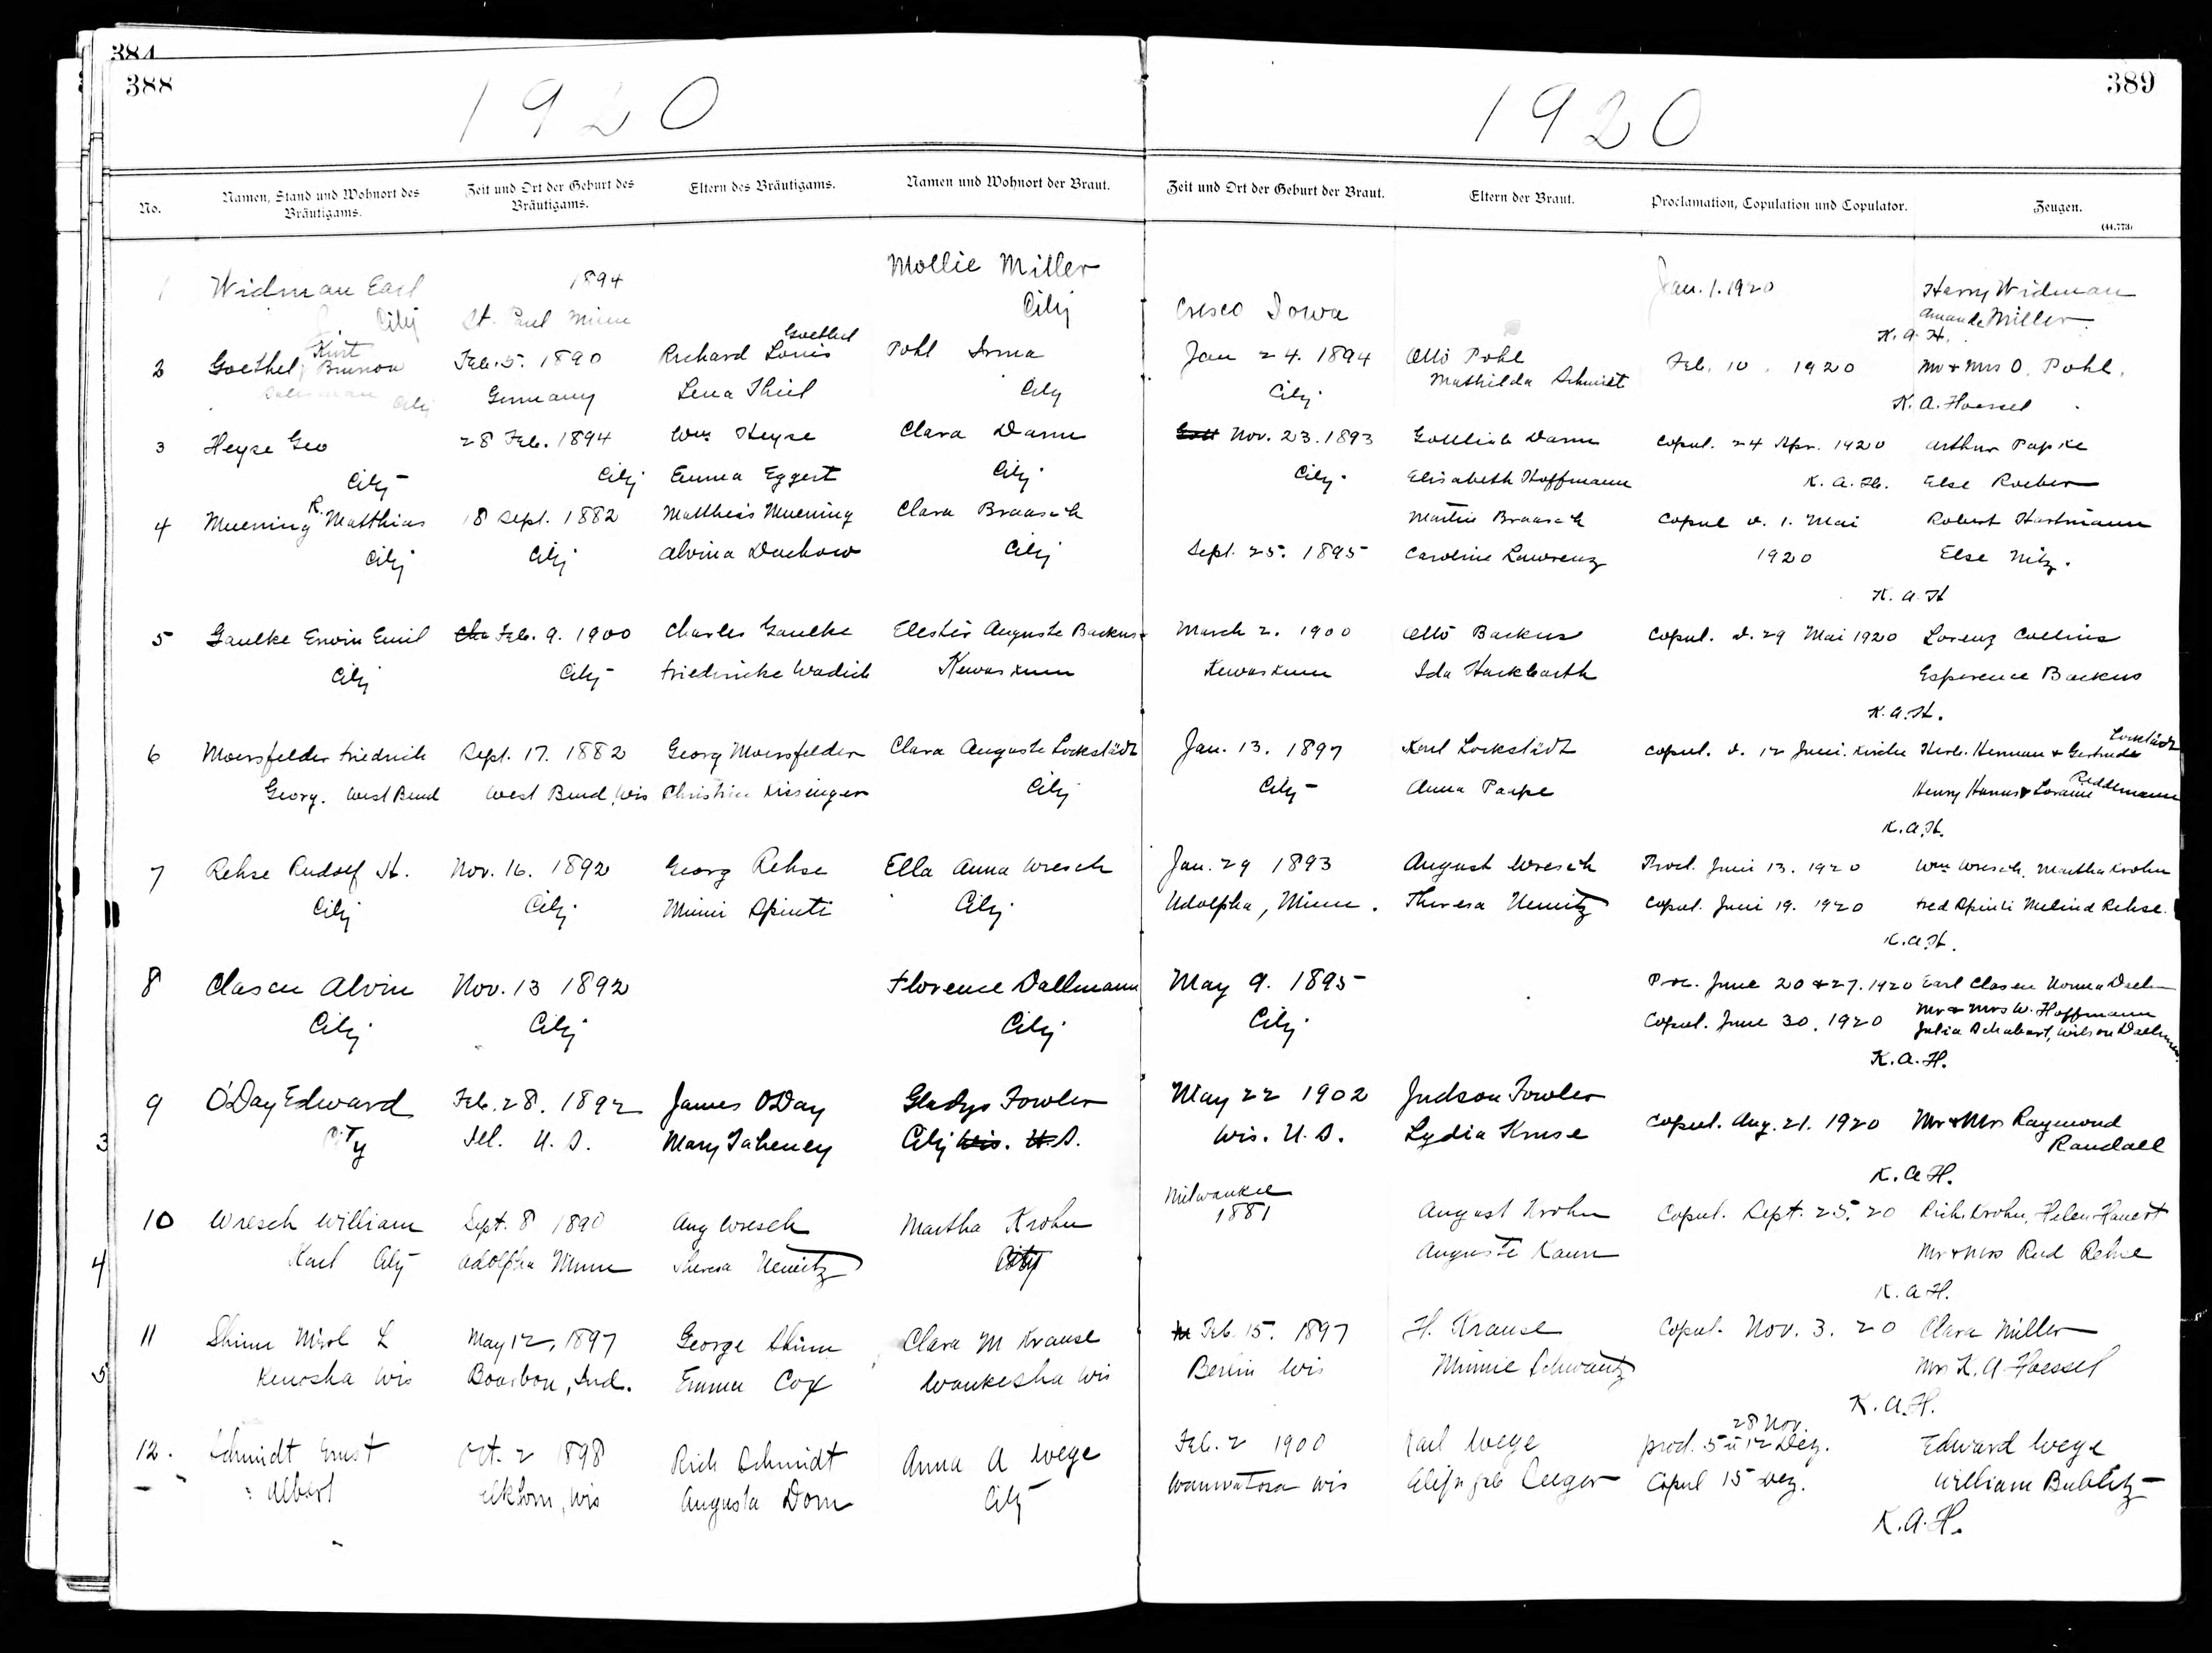 384
388
1920
No.
Namen, Stand und Wohnort des Bräutigams.
Zeit und Ort der Geburt des Bräutigams.
Eltern des Bräutigams.
Namen und Wohnort der Braut.
1 Widman Earl 1894 Mollie Miller
City St. Paul Minn City
2 Goethel, Kurt Brunon Feb. 5. 1890 Richard Louis Goethel Pohl Irma
City Germany Lena Thiel City
3 Heyse Geo 28 Feb. 1894 Wm Heyse Clara Damm
City City Emma Eggert City
4 Muening R. Matthias 18 Sept. 1882 Matthias Muening Clara Braasch
City City Alvina Dachow City
5 Gaulke Erwin Emil Feb. 9. 1900 Charles Gaulke Elester Auguste Backus
City City Friedricke Wadich Kewaskum
6 Moersfelder Friedrich Sept. 17. 1882 Georg Moersfelder Clara Auguste Lockstädt
Georg. West Bend West Bend, Wis Christine Kissinger City
7 Rehse Rudolf H. Nov. 16. 1892 Georg Rehse Ella Anna Wresch
City City Minni Spinti City
8 Clasen Alvin Nov. 13 1892 Florence Dallmann
City City City
9 O'Day Edward Feb. 28. 1892 James O'Day Gladys Fowler
3 City Ill. U. S. Mary Taheney City Wis. U. S.
10 Wresch William Sept. 8 1890 Aug Wresch Martha Krohn
4 Karl City Adolpha Minn Theresa Nemitz City
11 Shinn Mirl L May 12, 1897 George Shinn Clara M Krause
5 Kenosha Wis Bourbon, Ind. Emma Cox Waukesha Wis
12. Schmidt Ernst Oct. 2 1898 Rich Schmidt Anna A Wege
Albert Elkhorn, Wis Augusta Dorn City
389
1920
Zeit und Ort der Geburt der Braut.
Eltern der Braut.
Proclamation, Copulation und Copulator.
Zeugen.
(44.773)
Jan. 1. 1920 Harry Widman
Cresco Iowa Amanda Miller
K. A. H.
Jan 24. 1894 Otto Pohl Feb. 10. 1920 Mr & Mrs O. Pohl.
City Mathilda Schmidt
K. A. Hoessel
Nov. 23. 1893 Gottlieb Damm Copul. 24 Apr. 1920 Arthur Papke
City. Elisabeth Hoffmann K. A. H. Else Roeber
Martin Braasch Copul d. 1. Mai Robert Hartmann
Sept. 25. 1895 Caroline Lawrenz 1920 Else Nitz.
K. A. H
March 2. 1900 Otto Backus Copul. d. 29 Mai 1920 Lorenz Collins
Kewaskum Ida Hackbarth Esperence Backus
K. A. H.
Jan. 13. 1897 Karl Lockstädt Copul. d. 12 Juni. Kirche Herb. Herman & Gertrude Lockstädt
City Anna Paape Henry Hanus & Loraine Reddemann
K. A. H.
Jan. 29 1893 August Wresch Procl. Juni 13. 1920 Wm Wresch. Martha Krohn
Adolpha, Minn. Theresa Nemitz Copul. Juni 19. 1920 Fred Spinti Melind Rehse.
K. A. H.
May 9. 1895 Proc. June 20 & 27. 1920 Earl Clasen
City Copul. June 30. 1920 Mr & Mrs W. Hoffmann
Julia Schubert,
K. A. H.
May 22 1902 Judson Fowler
Wis. U. S. Lydia Kruse Copul. Aug. 21. 1920 Mr & Mrs Raymond
Randall
K. A. H.
Milwaukee
1881 August Krohn Copul. Sept. 25. 20 Rich. Krohn, Helen Hauert
Auguste Kann Mr & Mrs Rud Rehse
K. A. H.
Feb. 15. 1897 H. Krause Copul. Nov. 3. 20 Clara Miller
Berlin Wis Minnie Schwantz Mrs K. A. Hoessel
K. A. H.
28 Nov.
Feb. 2 1900 Karl Wege procl. 5 u 12 Dez. Edward Wege
Wauwatosa Wis Copul 15 Dez. William Bublitz
K. A. H.